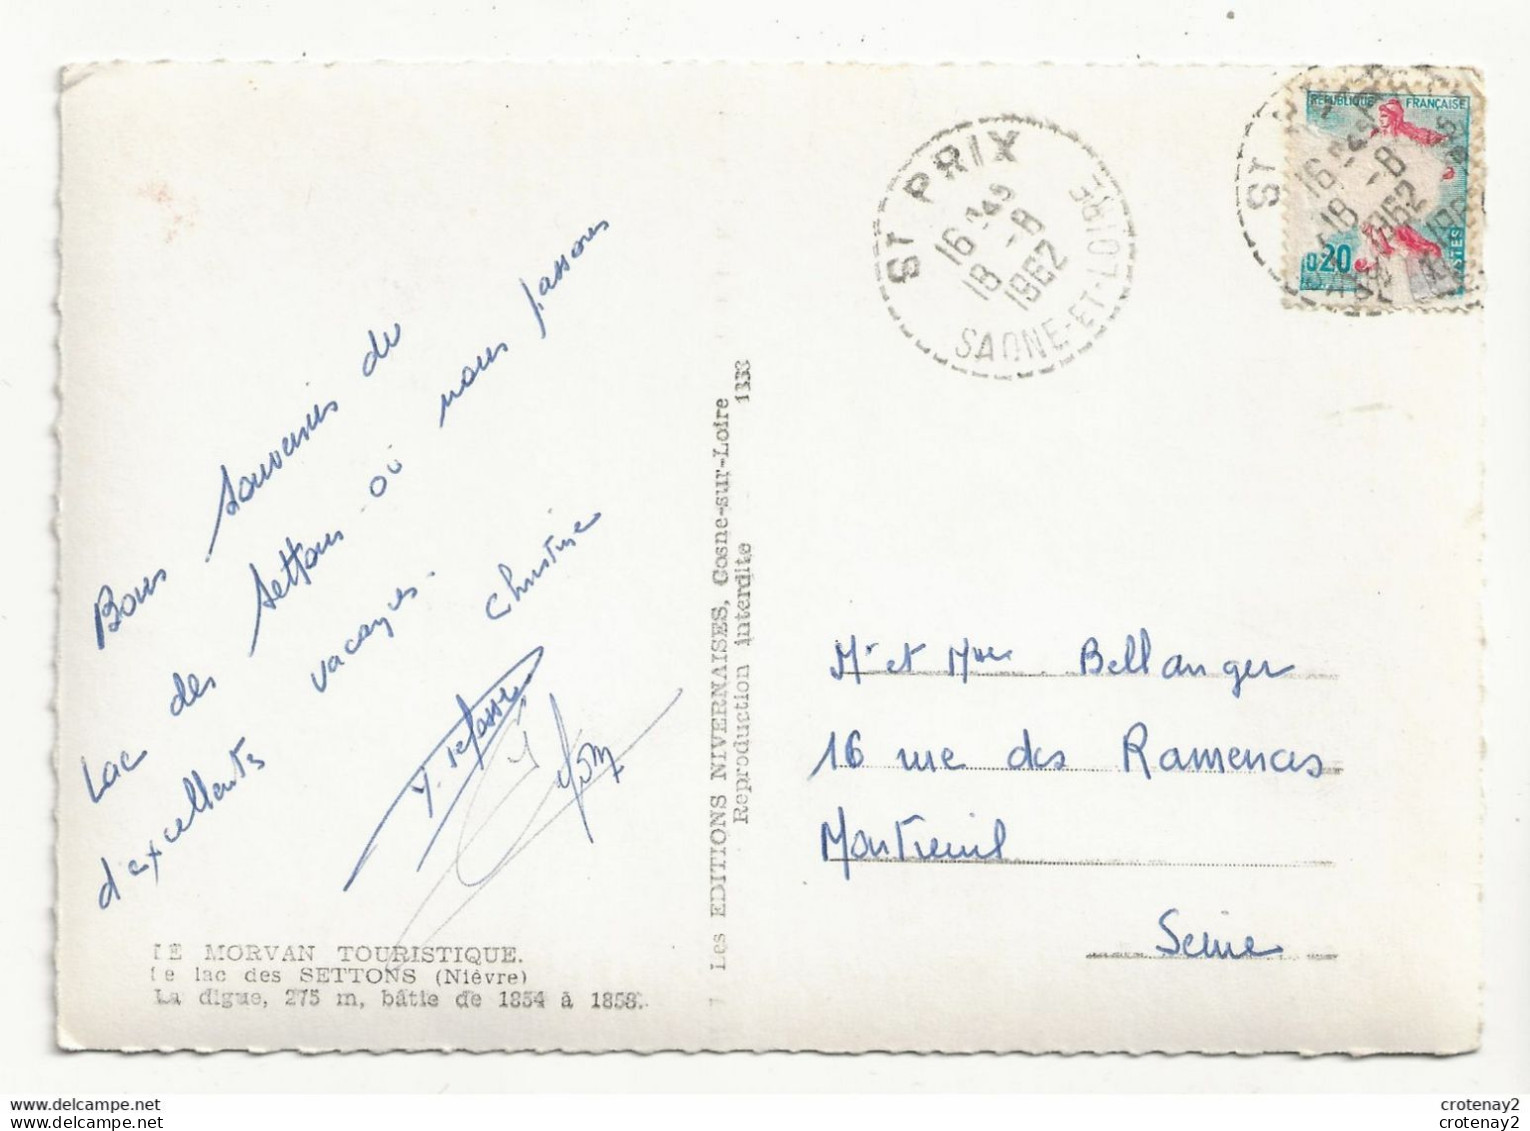 Bons souvenirs du
Lac des Settons où nous passons
d'excellents vacances.
Christine
LE MORVAN TOURISTIQUE.
Le lac des SETTONS (Nièvre)
La digue, 275 m, bâtie de 1854 à 1858.
Les EDITIONS NIVERNAISES, Cosne-sur-Loire
Reproduction interdite 1333
ST PRIX
16 H45
18 -8
1962
SAONE-ET-LOIRE
REPUBLIQUE FRANÇAISE
0,20
POSTES
ST
16 H45
18 -8
1962
Mr et Mme Bellanger
16 rue des Ramenas
Montreuil
Seine
delcampe.net
crotenay2
crotenay2